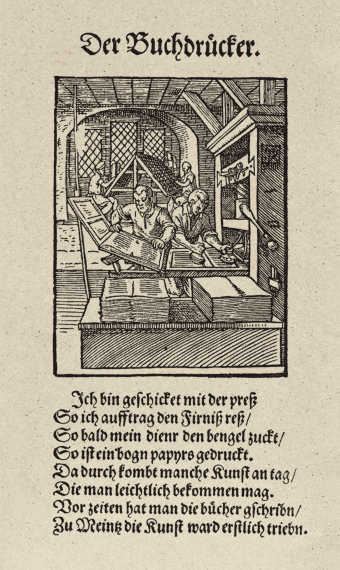 Der Buchdrücker.
Ich bin geschicket mit der preß
So ich aufftrag den Firniß reß/
So bald mein dienr den bengel zuckt/
So ist ein bogn papyrs gedruckt.
Da durch kombt manche Kunst an tag/
Die man leichtlich bekommen mag.
Vor zeiten hat man die bücher gschribn/
Zu Meintz die Kunst ward erstlich triebn.